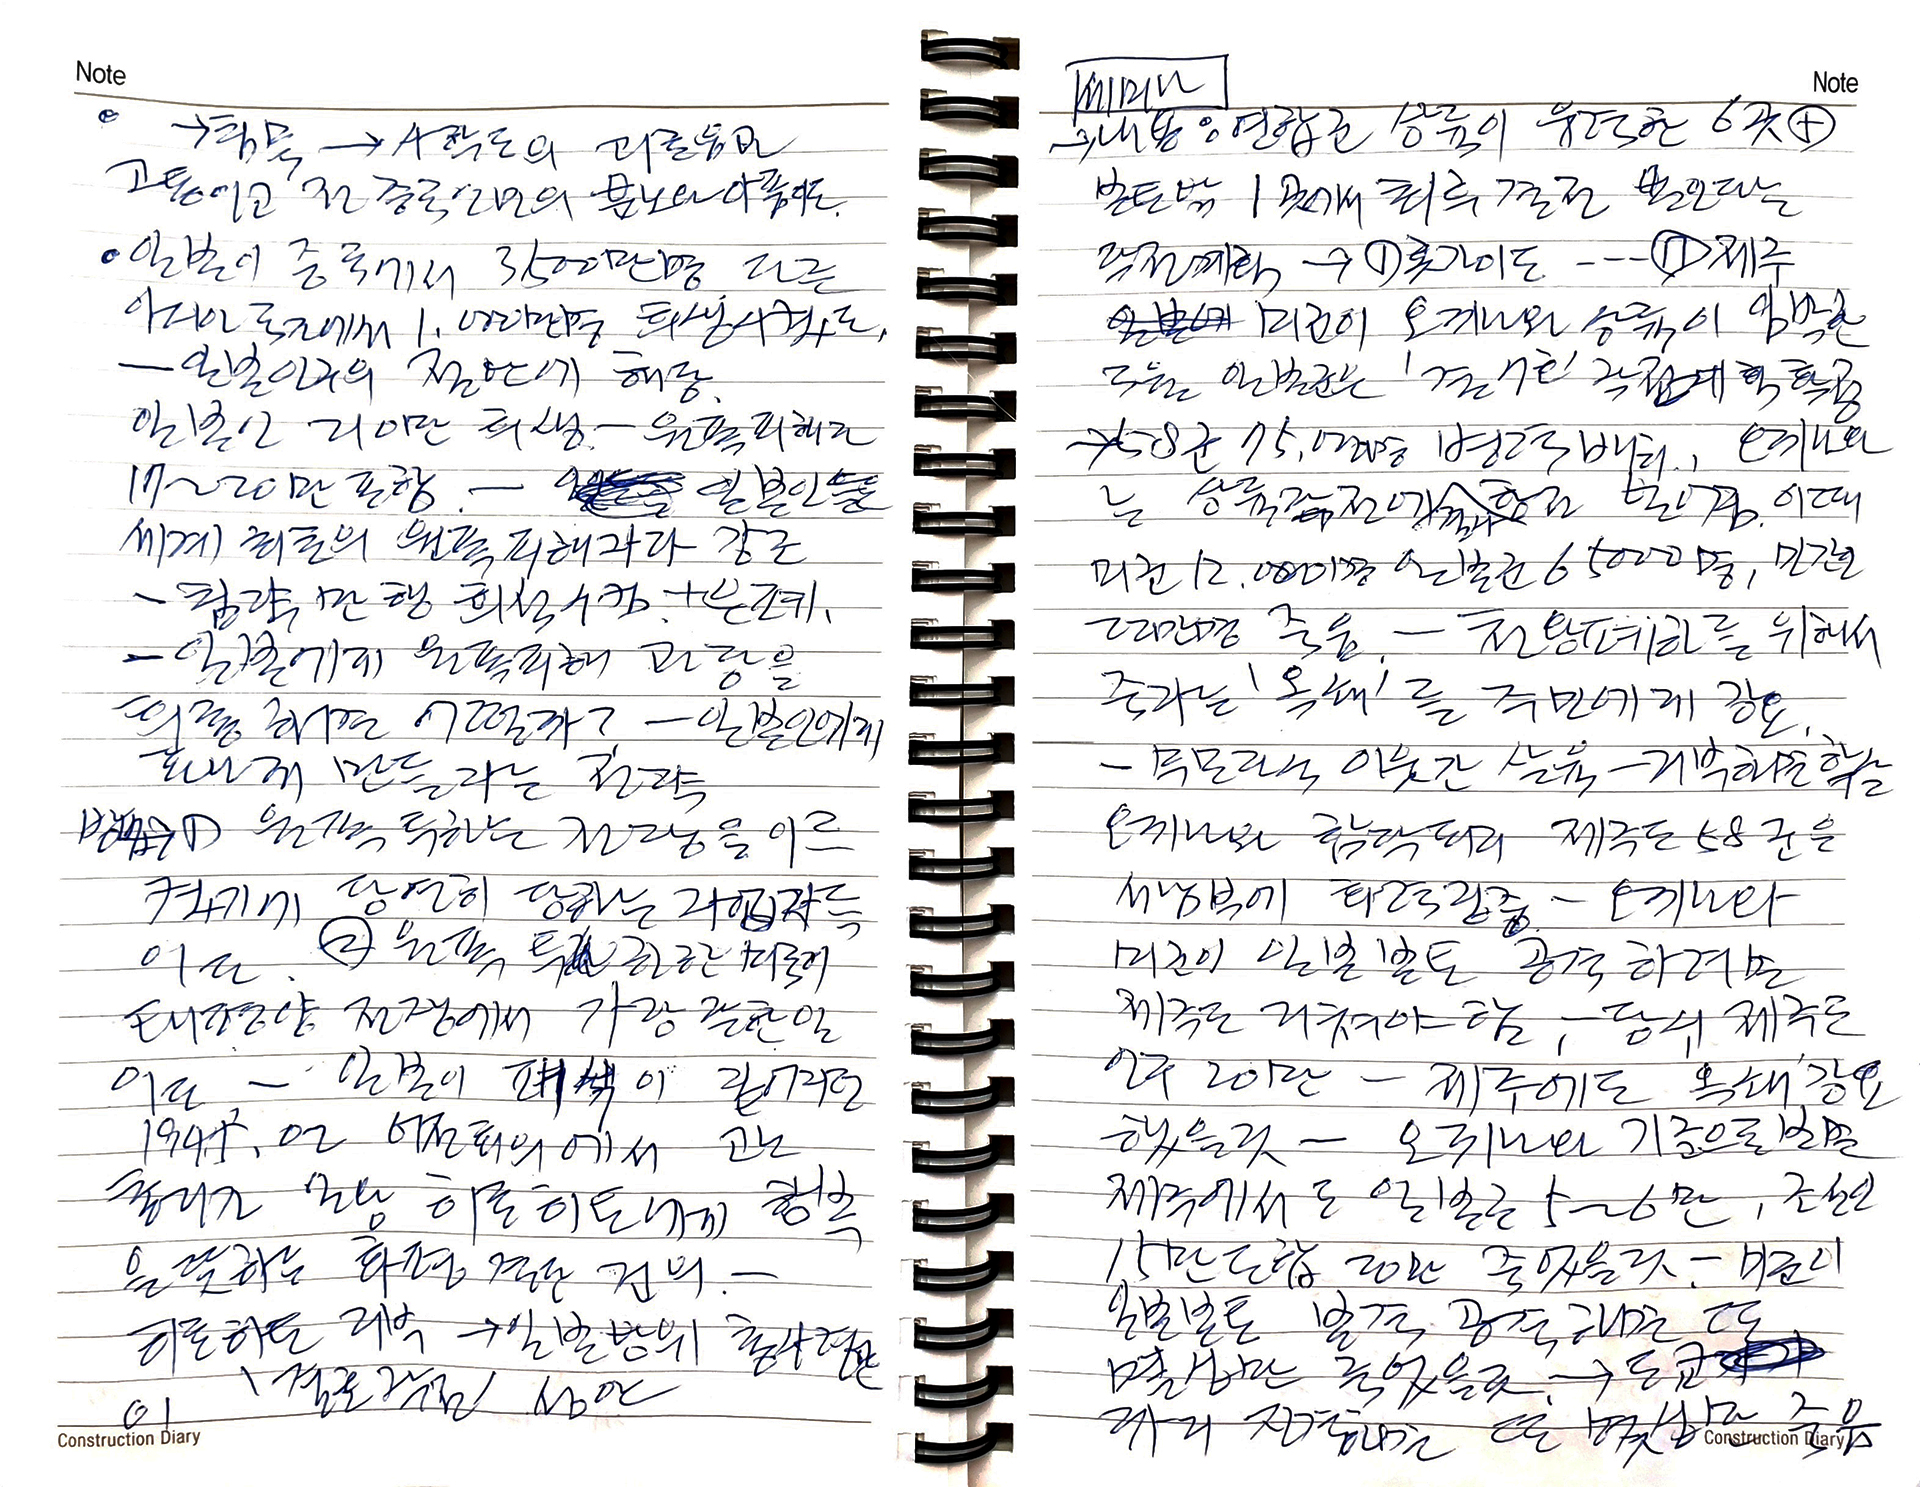 Note
→침묵 → 4학도의 괴로움과
고통이고 전 중국인민의 분노와 아픔이다.
• 일본이 중국에서 3,500만명 다른
아시아 국가에서 1,000만명 희생시켰다.
— 일본인구의 절반에 해당.
일본인 310만 희생 — 원폭피해자
17~20만 포함. — 일본인들
세계 최초의 원폭피해자라 강조
- 침략 만행 희석시킴
- 일본에게 원폭피해 과장을
하면 어떨까? — 일본인에게
만들라는 전략
방법 ① 원자폭 투하는 전쟁을 일으
켰기에 당연히 당하는
이다. ② 원폭 투하는 미국이
태평양 전쟁에서 가장 잘한 일
이다 — 일본이 패색이 짙어지던
1945. 02 어전회의에서 고노
총리가 일왕 히로히토에게 항복
을 뜻하는 화평 결단 건의. —
히로히토 거부 → 일본방위 총사령관
이 '결호작전' 입안
Construction Diary
Note
세미나
→내용 ① 연합군 상륙이 유력한 6곳 ⊕
본토밖 1곳에서 최후 결전 벌인다는
작전계획 → ① 홋카이도 --- ⑦ 제주
미군이 오키나와 상륙이 임박한
무렵 일본군은 '결7호' 작전계획 확정
→ 58군 75,000명 병력 배치, 오키나와
는 상륙작전에 벌어짐. 이때
미군 12,000명 일본군 65000명, 민간인
12만명 죽음. — 천왕폐하를 위해서
죽자는 '옥쇄'를 주민에게 강요.
- 부모자식 이웃간 살육 — 거부하면 학살
오키나와 함락되자 제주도 58군을
서남부에 화력집중 — 오키나와
미군이 일본 본토 공격하려면
제주도 거쳐야 함, — 당시 제주도
인구 20만 — 제주에도 '옥쇄' 강요
했을것 — 오키나와 기준으로 보면
제주에서도 일본군 5~6만, 조선인
15만 도합 20만 죽었을것 — 미군이
일본본토 본격 공격했으면 또
몇십만 죽었을것. → 도쿄
까지 진출했으면 또 몇십만 죽음
Construction Diary